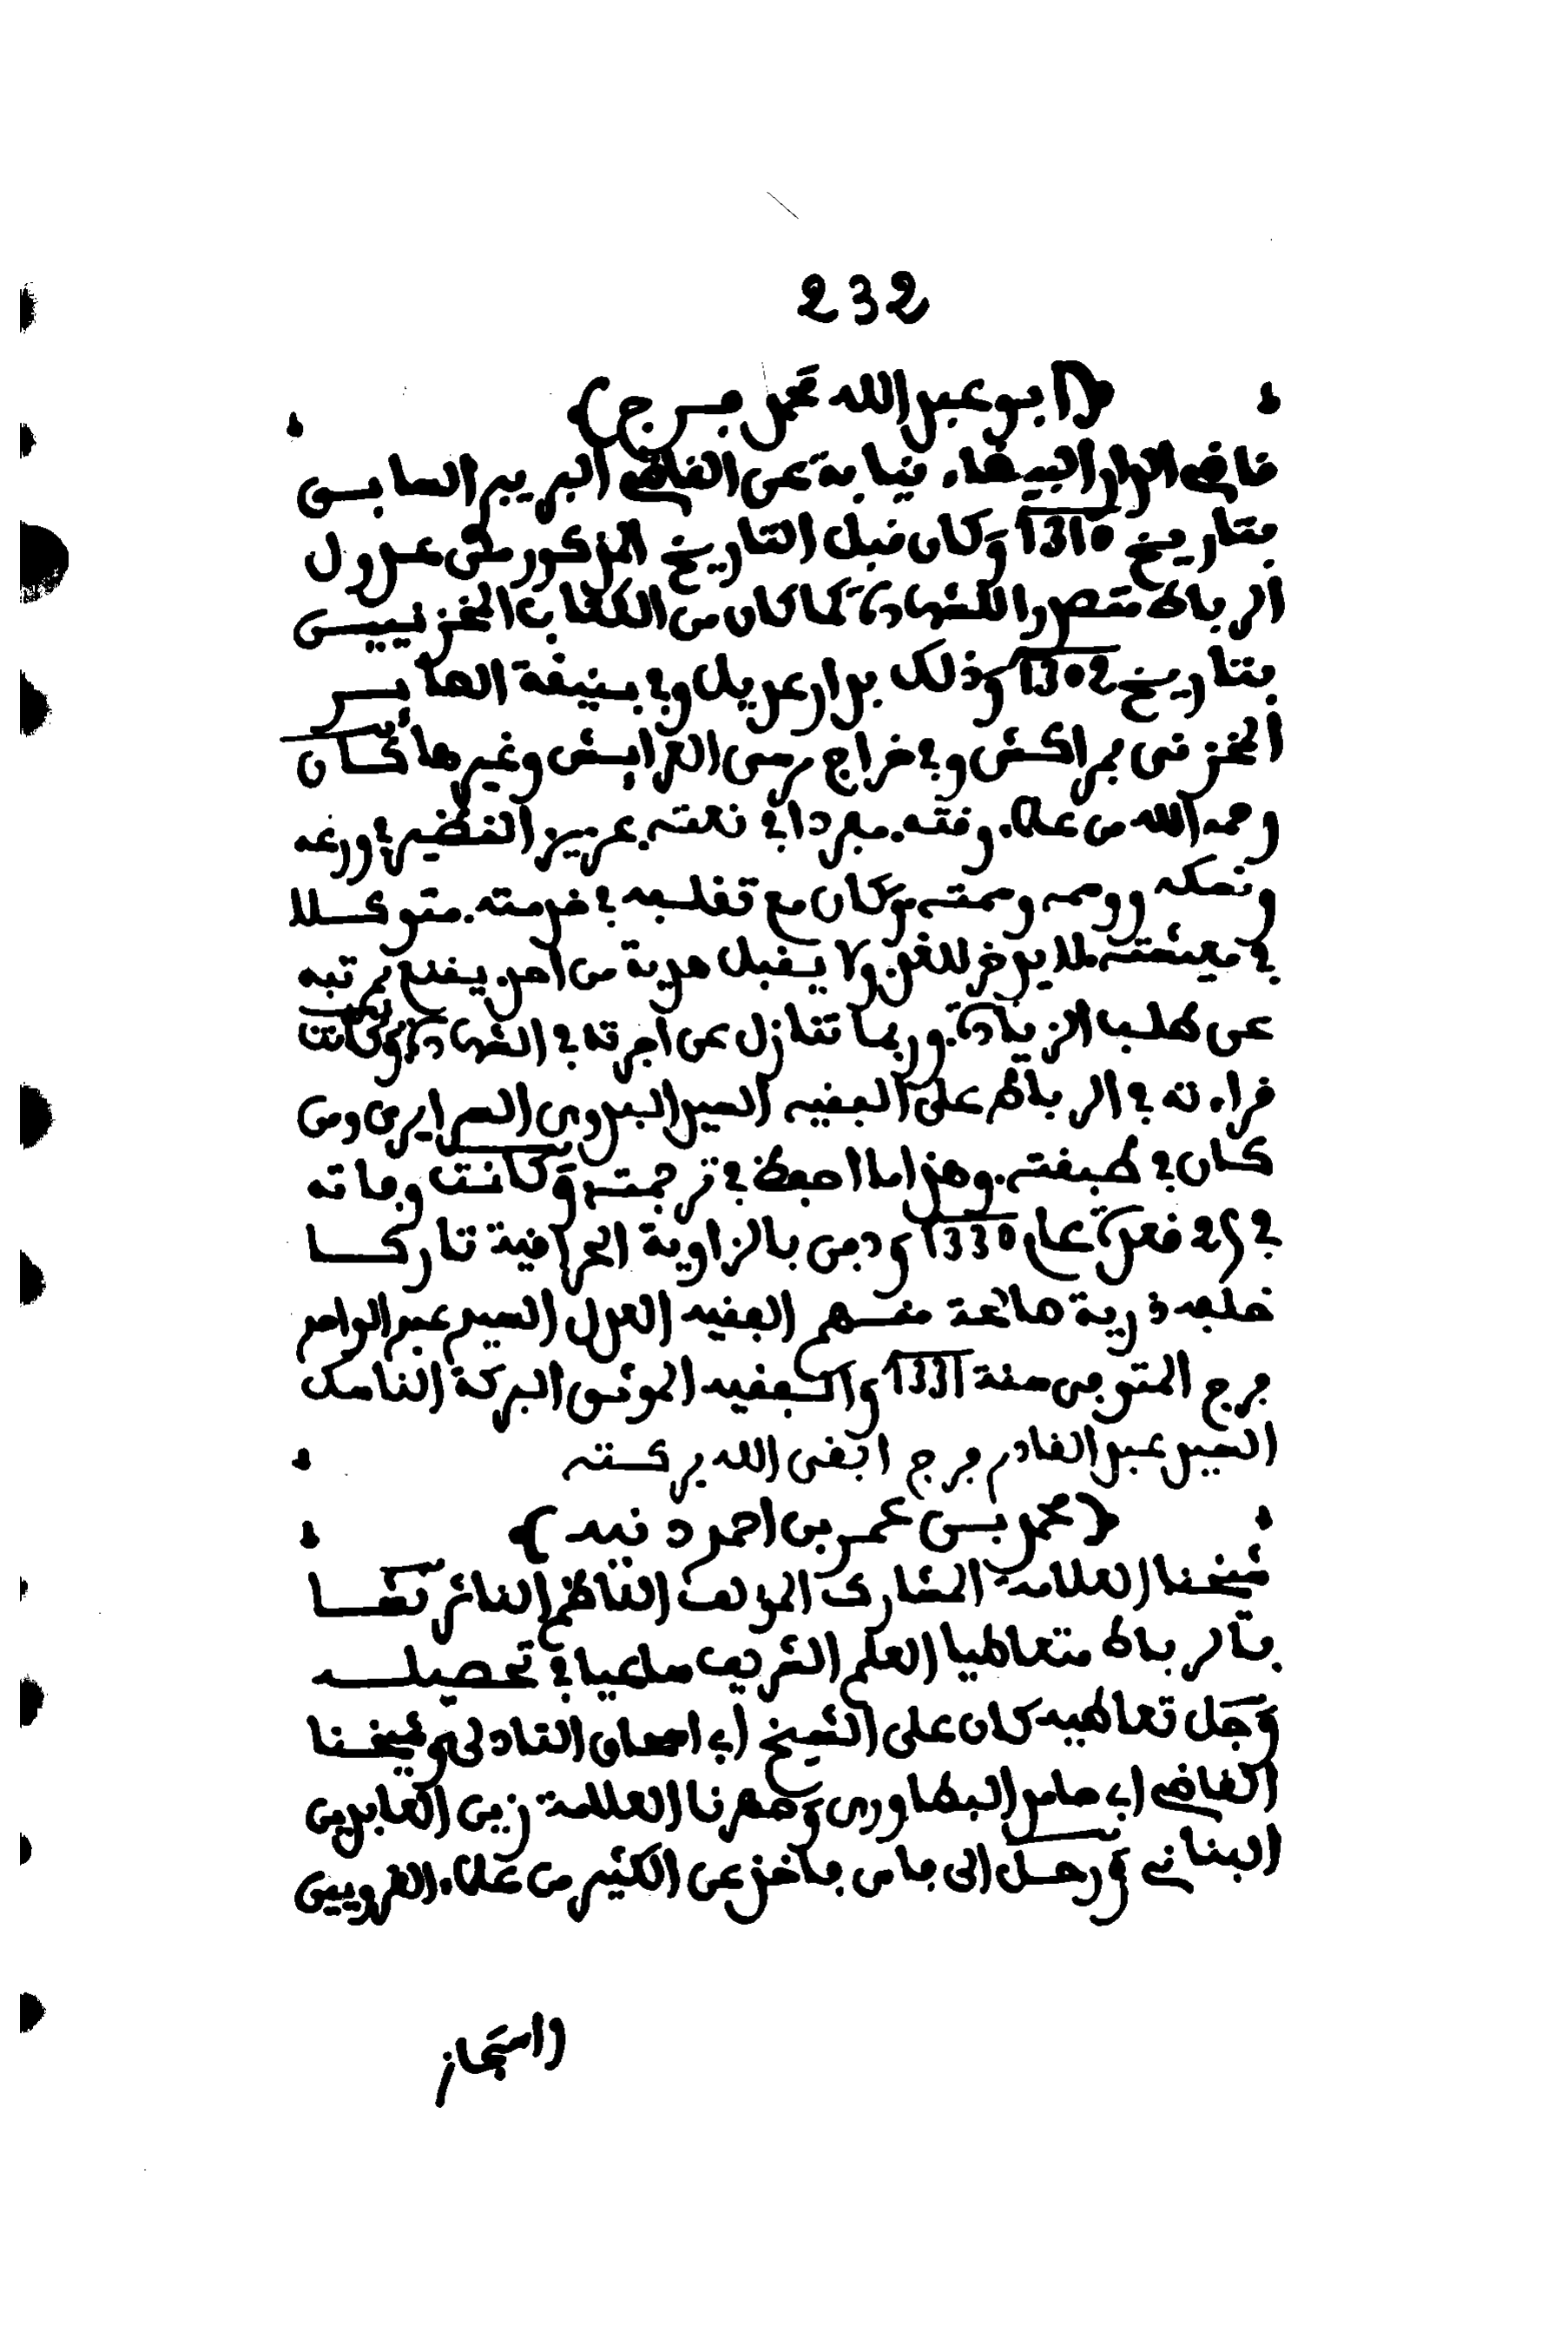 232
(ابو عبد الله محمد فرج)
قاضي الدار البيضاء نيابة عن القاضي البريبر السابق
بتاريخ 1310 وكان قبل التاريخ المذكور من عدول
الرباط متصدرا للشهادة كما كان من الكتاب المخزنيين
بتاريخ 1302 وذلك بدار عديل وفي بنيقة الصاير
المخزني بمراكش وفي خراج مرسى العرايش وغيرها كان
رحمه الله من علماء وقته مفردا في نعته عزيز النظير في ورعه
ونسكه وسمته كان مع تقلبه في خدمته متوكلا
في معيشته لا يدخر للغد ولا يقبل هدية من احد يقنع بمرتبه
عن طلب الزيادة وربما تنازل عن اجرته في الشهادة وكانت
قراءته في الرباط على الفقيه السيد البدوي السرايري ومن
كان في طبقته وهذا ما احفظ في ترجمته وكانت وفاته
في 25 قعدة عام 1330 ودفن بالزاوية الحراقية تاركا
خلفه ذرية صالحة منهم الفقيه العدل السيد عبد الواحد
فرج المتوفى سنة 1331 والفقيه الموثق البركة الناسك
السيد عبد القادر فرج ابقى الله بركته
(محمد بن عمر بن احمد دنيه)
شيخنا العلامة المشارك المؤلف الناظم الناثر نشا
بالرباط متعاطيا العلم الشريف ساعيا في تحصيله
وجل تعاطيه كان على الشيخ ابي اسحاق التادلي وشيخنا
القاضي ابي حامد البطاوري وصهرنا العلامة زين العابدين
البناني ورحل الى فاس فاخذ عن الكثير من علماء القرويين
واستجاز